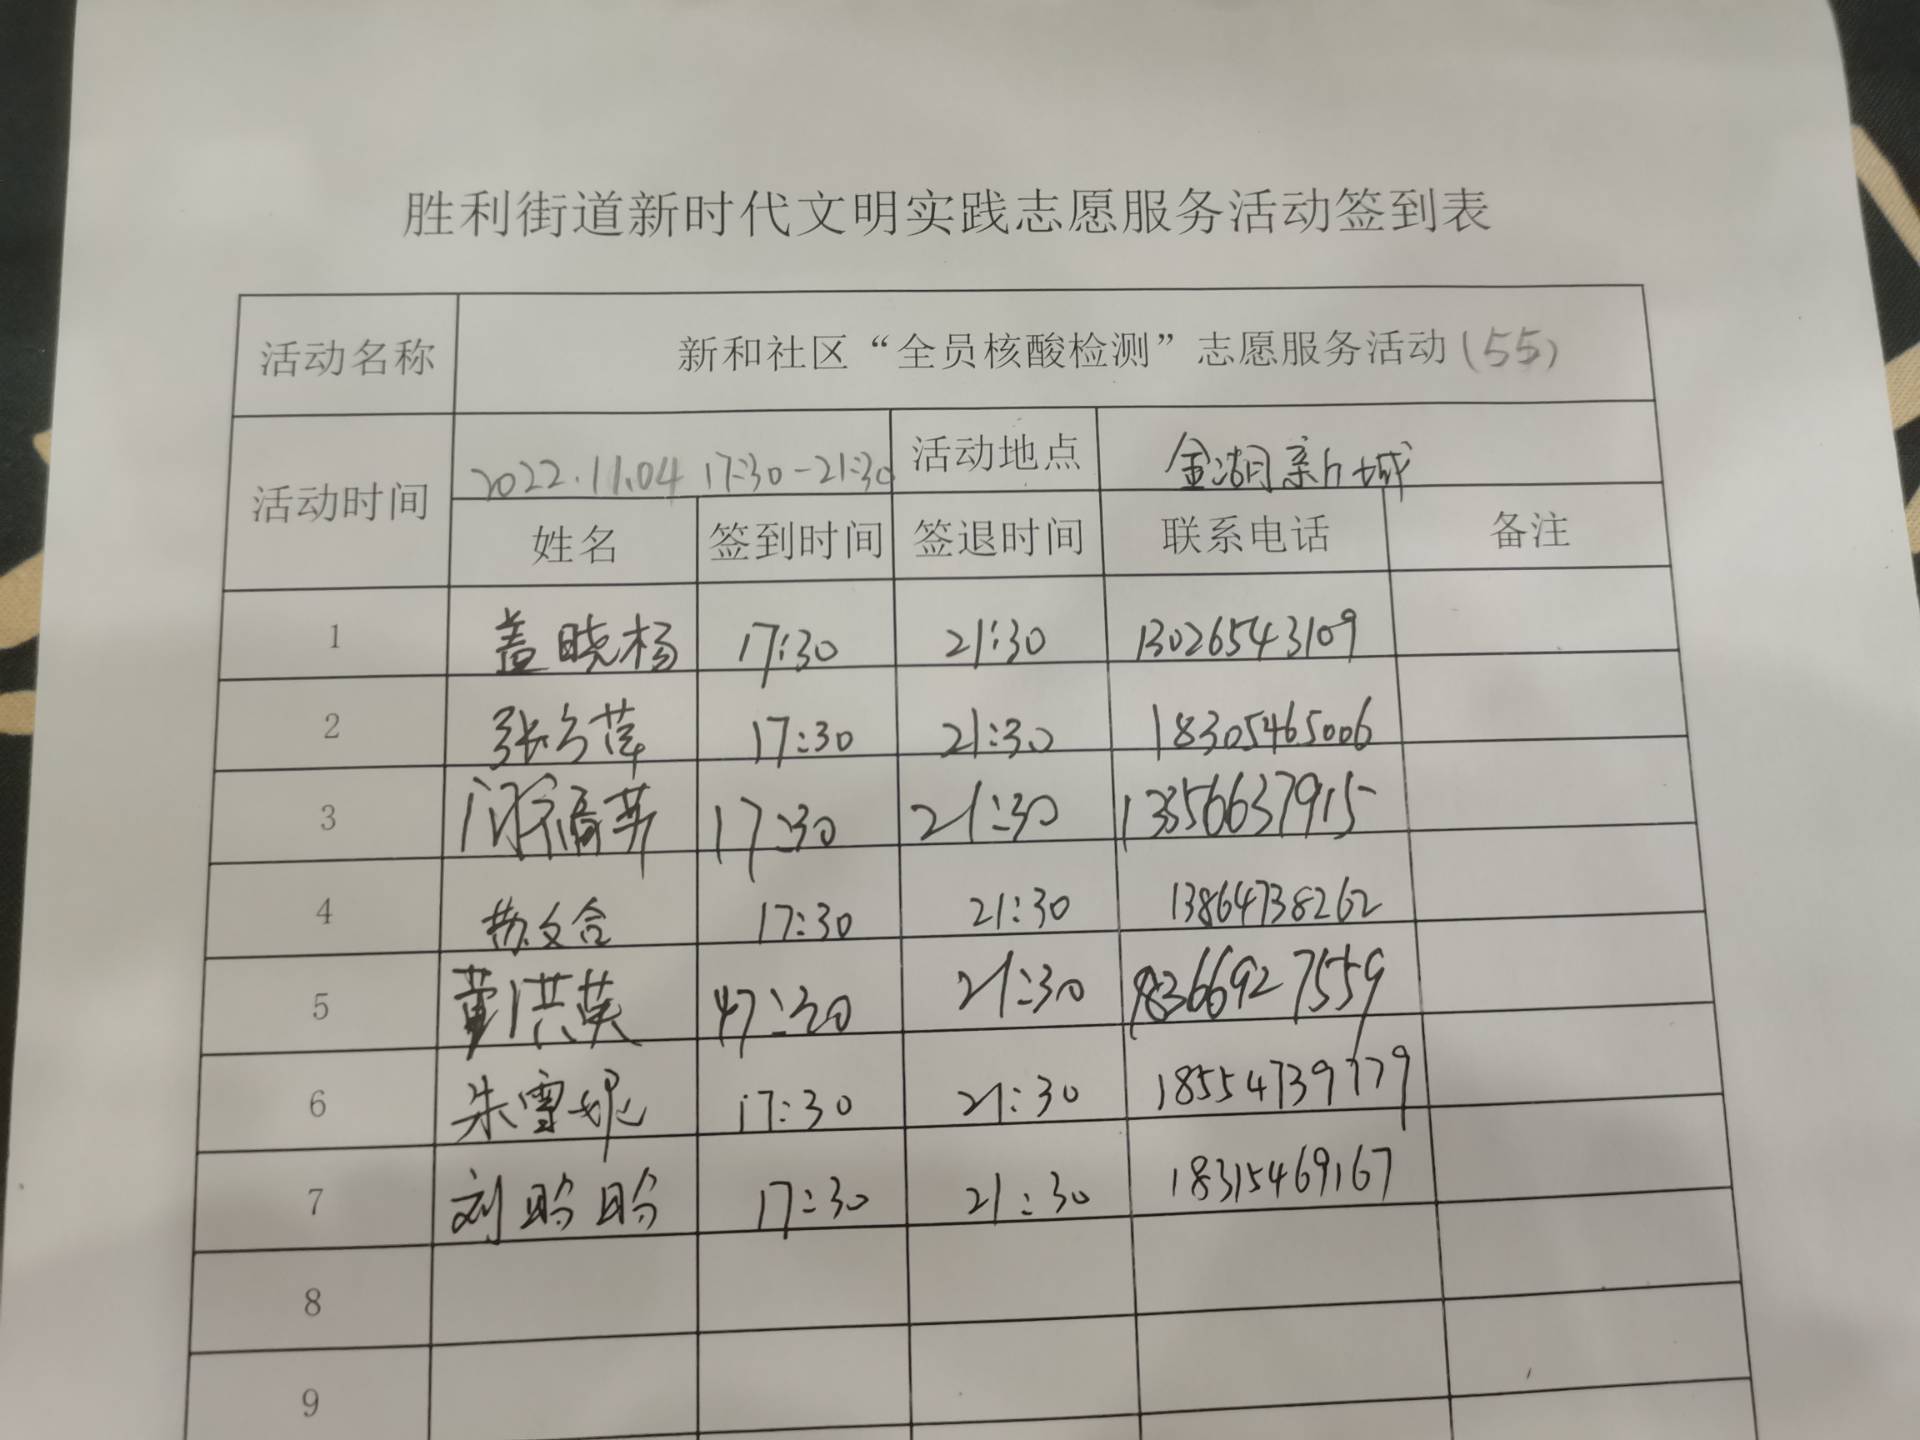 胜利街道新时代文明实践志愿服务活动签到表
活动名称 新和社区“全员核酸检测”志愿服务活动(55)
活动时间 2022.11.04 17:30-21:30 活动地点 金湖新城
姓名 签到时间 签退时间 联系电话 备注
1 盖晓杨 17:30 21:30 13026543109
2 张 萍 17:30 21:30 18305465006
3 闫福英 17:30 21:30 13356637915
4 文合 17:30 21:30 13864738262
5 董洪英 17:30 21:30 18366927559
6 朱雪妮 17:30 21:30 18554739779
7 刘盼盼 17:30 21:30 18315469167
8
9